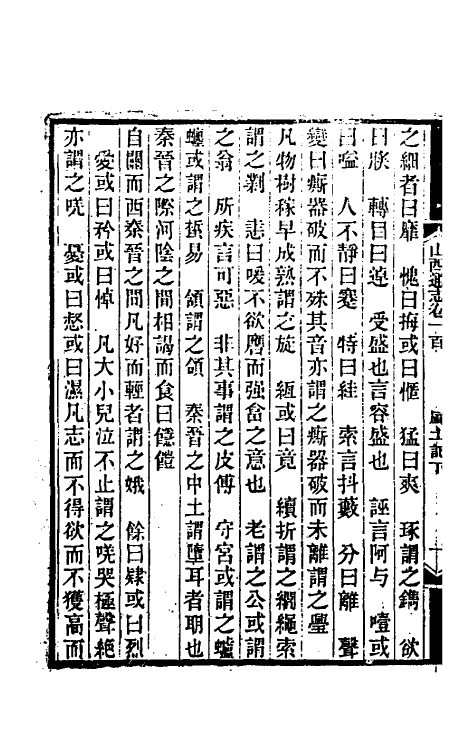 山西通志卷一百　風土記下
之細者曰靡　愧曰挴或曰㥏　猛曰爽　琢謂之鐫　欲
曰　轉目曰逴　受盛也言容盛也　誣言阿与　噎或
曰嗌　人不靜曰妯　特曰絓　索言抖藪　分曰離　聲
變曰㾷器破而不殊其音亦謂之㾷器破而未離謂之璺
凡物樹稼早成熟謂之旋　絙或曰竟　續折謂之繝繩索
謂之剿　悲曰喛不欲譍而强䛐之意也　老謂之公或謂
之翁　所疾言可惡　非其事謂之皮傅　守宮或謂之蠦
蠪或謂之蜇易　頷謂之頜　秦晉之中土謂墮耳者明也
秦晉之際河陰之間相謁而食曰䭓饐
自關而西秦晉之間凡好而輕者謂之娥　餘曰肄或曰烈
愛或曰矜或曰悼　凡大小兒泣不止謂之唴哭極聲絕
亦謂之唴　憂或曰惄或曰濕凡志而不得欲而不獲高而